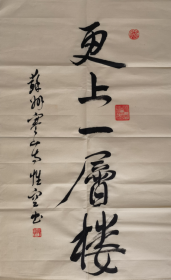 更上一層楼
蘇州寒山寺性空书